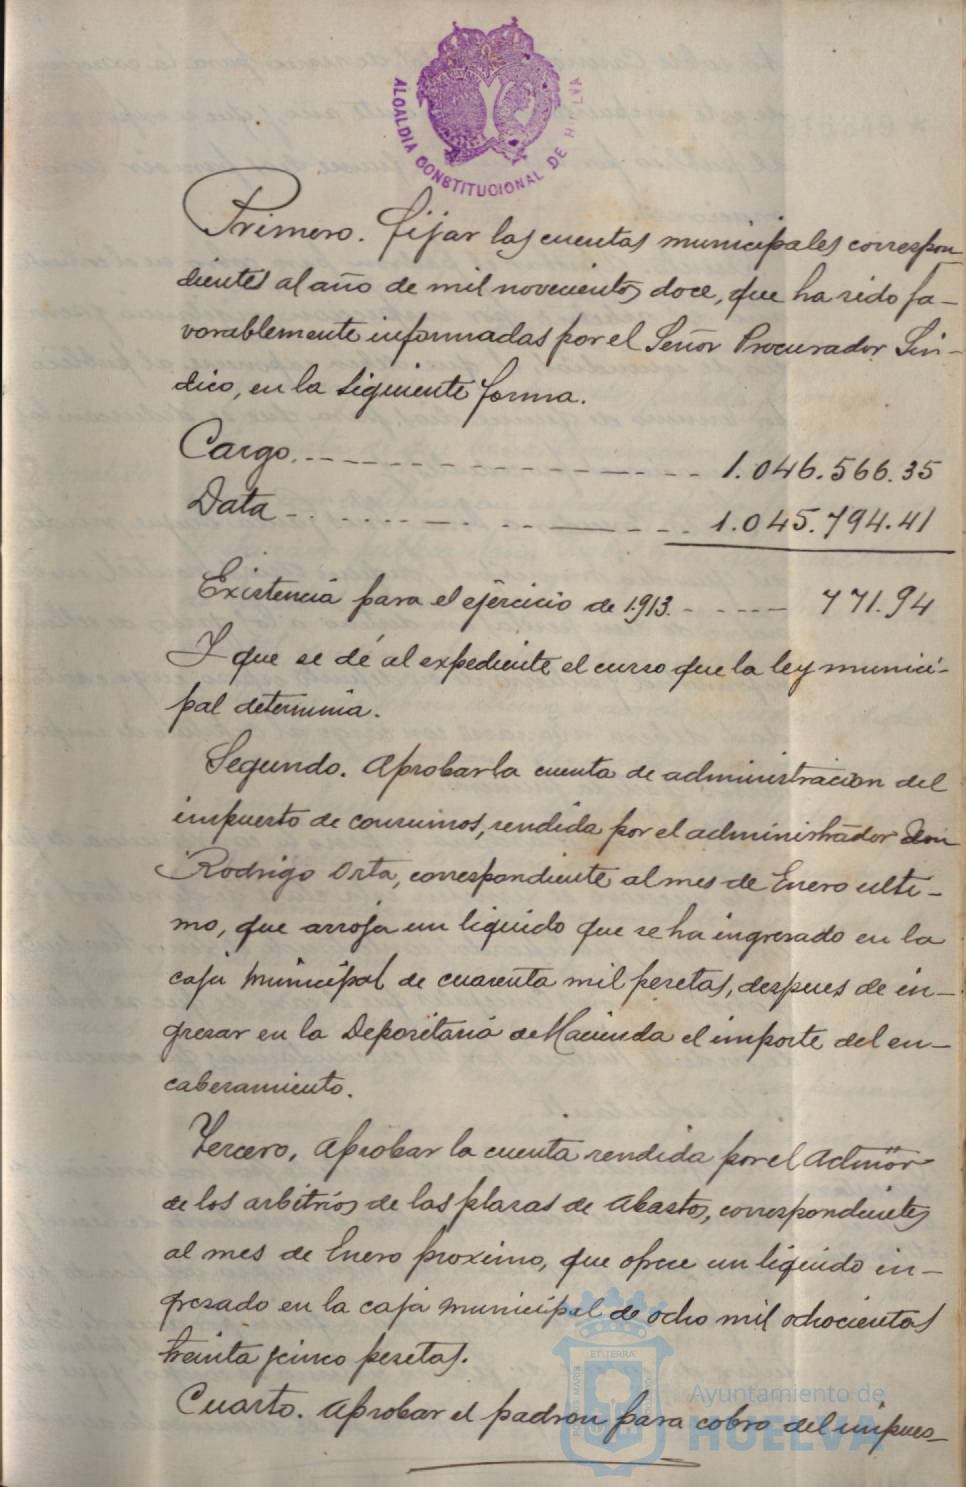 ALCALDIA CONSTITUCIONAL DE HUELVA
Primero. Fijar las cuentas municipales correspon-
dientes al año de mil novecientos doce, que ha sido fa-
vorablemente informadas por el Señor Procurador Sin-
dico, en la siguiente forma.
Cargo. 1.046.566.35
Data 1.045.794.41
Existencia para el ejercicio de 1.913. 771.94
Y que se dé al expediente el curso que la ley munici-
pal determina.
Segundo. Aprobar la cuenta de administracion del
impuesto de consumos, rendida por el administrador Don
Rodrigo Orta, correspondiente al mes de Enero ulti-
mo, que arroja un liquido que se ha ingresado en la
caja Municipal de cuarenta mil pesetas, despues de in-
gresar en la Depositaria de Hacienda el importe del en-
cabezamiento.
Tercero. Aprobar la cuenta rendida por el Admor
de los arbitrios de las plazas de Abastos, correspondientes
al mes de Enero proximo, que ofrece un liquido in-
gresado en la caja municipal de ocho mil ochocientas
treinta y cinco pesetas.
Cuarto. Aprobar el padron para cobro del impues-
Ayuntamiento de
HUELVA